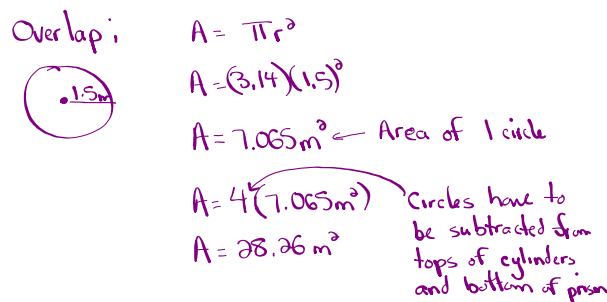 Overlap:
A = πr²
1.5m
A = (3.14)(1.5)²
A = 7.065m² ← Area of 1 circle
A = 4(7.065m²)
A = 28.26 m²
Circles have to
be subtracted from
tops of cylinders
and bottom of prism